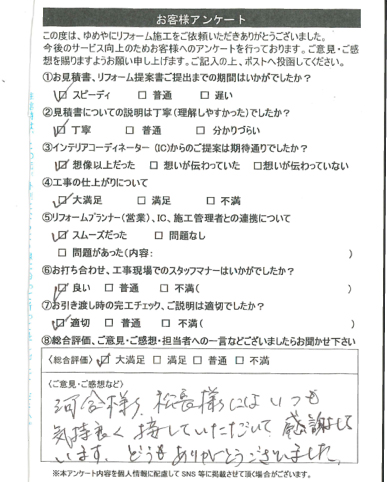 お客様アンケート
この度は、ゆめやにリフォーム施工をご依頼いただきありがとうございました。
今後のサービス向上のためお客様へのアンケートを行っております。ご意見・ご感
想を賜りますようお願い申し上げます。ご記入の上、ポストへ投函してください。
①お見積書、リフォーム提案書ご提出までの期間はいかがでしたか？
☑ スピーディ □ 普通 □ 遅い
②見積書についての説明は丁寧（理解しやすかった）でしたか？
☑ 丁寧 □ 普通 □ 分かりづらい
③インテリアコーディネーター（IC）からのご提案は期待通りでしたか？
☑ 想像以上だった □ 想いが伝わっていた □想いが伝わっていない
④工事の仕上がりについて
☑ 大満足 □ 満足 □ 不満
⑤リフォームプランナー（営業）、IC、施工管理者との連携について
☑ スムーズだった □ 問題なし
□ 問題があった（内容： ）
⑥お打ち合わせ、工事現場でのスタッフマナーはいかがでしたか？
☑ 良い □ 普通 □ 不満（ ）
⑦お引き渡し時の完工チェック、ご説明は適切でしたか？
☑ 適切 □ 普通 □ 不満（ ）
⑧総合評価、ご意見・ご感想・担当者への一言などございましたらお聞かせ下さい
〈総合評価〉☑ 大満足 □ 満足 □ 普通 □ 不満
〈ご意見・ご感想など〉
河合様、松長様にはいつも
気持良く接していただいて 感謝して
います。どうもありがとうございました。
※本アンケート内容を個人情報に配慮して SNS 等に掲載させて頂く場合がございます。